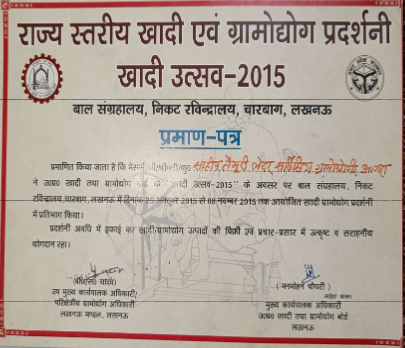 राज्य स्तरीय खादी एवं ग्रामोद्योग प्रदर्शनी
खादी उत्सव-2015
बाल संग्रहालय, निकट रविन्द्रालय, चारबाग, लखनऊ
प्रमाण-पत्र
प्रमाणित किया जाता है कि मेसर्स ग्रामोद्योगी आगरा
ने उ०प्र० खादी तथा ग्रामोद्योग बोर्ड के "खादी उत्सव-2015" के अवसर पर बाल संग्रहालय, निकट
रविन्द्रालय,चारबाग, लखनऊ में दिनांक 25 अक्टूबर 2015 से 08 नवम्बर 2015 तक आयोजित खादी ग्रामोद्योग प्रदर्शनी
में प्रतिभाग किया।
प्रदर्शनी अवधि में इकाई का खादी/ग्रामोद्योग उत्पादों की बिक्री एवं प्रचार-प्रसार में उत्कृष्ट व सराहनीय
योगदान रहा।
यादव)
उप मुख्य कार्यपालक अधिकारी/
परिक्षेत्रीय ग्रामोद्योग अधिकारी
लखनऊ मण्डल, लखनऊ
(मनमोहन चौधरी)
मुख्य कार्यपालक अधिकारी
उ०प्र० खादी तथा ग्रामोद्योग बोर्ड
लखनऊ